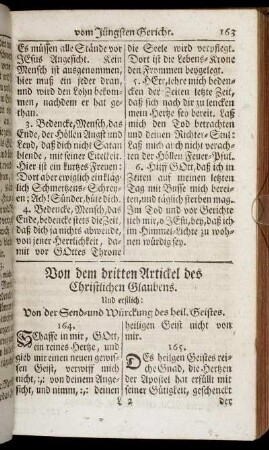 vom Jüngsten Gericht. 163
Es müssen alle Stände vor
JEsus Angesicht. Kein
Mensch ist ausgenommen,
hier muß ein jeder dran,
und wird den Lohn bekom-
men, nachdem er hat ge-
than.
3. Bedencke, Mensch, das
Ende, der Höllen Angst und
Leyd, daß dich nicht Satan
blende, mit seiner Eitelkeit.
Hier ist ein kurtzes Freuen:
Dort aber ewiglich ein kläg-
lich Schmertzens-Schrey-
en; Ach! Sünder, hüte dich.
4. Bedencke, Mensch, das
End, bedencke stets die Zeit,
daß dich ja nichts abwende,
von jener Herrlichkeit, da-
mit vor GOttes Throne
die Seele wird verpflegt.
Dort ist die Lebens-Krone
den Frommen beygelegt.
5. HErr, lehre mich beden-
cken der Zeiten letzte Zeit,
daß sich nach dir zu lencken
mein Hertz sey bereit. Laß
mich den Tod betrachten
und deinen Richter-Stul:
Laß mich auch nicht verach-
ten der Höllen Feuer-Pful.
6. Hilff GOtt, daß ich in
Zeiten auf meinen letzten
Tag mit Busse mich berei-
ten, und täglich sterben mag.
Im Tod und vor Gericht
steh mir, o JEsu, bey, daß ich
im Himmel-Lichte zu woh-
nen würdig sey.
Von dem dritten Artickel des
Christlichen Glaubens.
Und erstlich:
Von der Send-und Würckung des heil. Geistes.
164.
SChaffe in mir, GOtt,
ein reines Hertze, und
gieb mir einen neuen gewis-
sen Geist, verwirf mich
nicht, :,: von deinem Ange-
sicht, und nimm, :,: deinen
heiligen Geist nicht von
mir.
165.
DEs heilgen Geistes rei-
che Gnad, die Hertzen
der Apostel hat erfüllt mit
seiner Gütigkeit, geschenckt
L 2 der